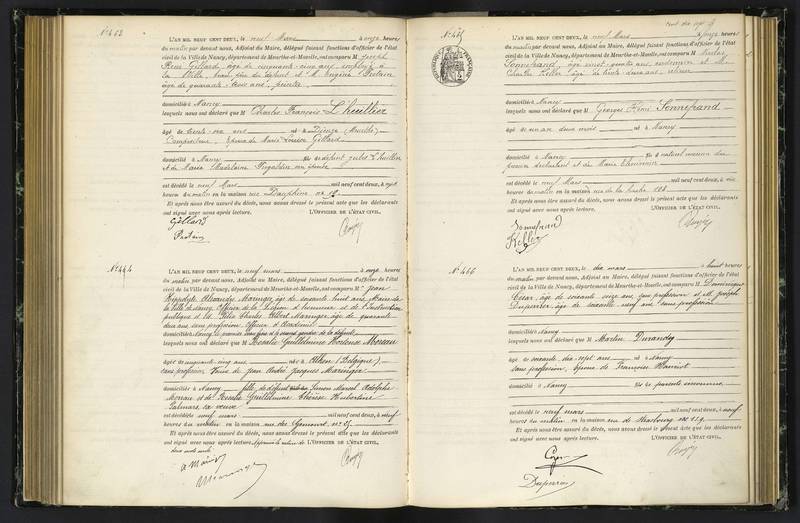 N° 463
L'AN MIL NEUF CENT DEUX, le neuf Mars à onze heures
du matin par devant nous, Adjoint au Maire, délégué faisant fonctions d'officier de l'état
civil de la Ville de Nancy, département de Meurthe-et-Moselle, ont comparu M Joseph
René Gillard, âgé de cinquante-cinq ans, employé à
la Ville, beau père du défunt et M. Eugène
âgé de quarante trois ans, peintre
domiciliés à Nancy
lesquels nous ont déclaré que M Charles François Lhuillier
âgé de trente six ans né à Dieuze (Meurthe)
Compositeur, époux de Marie Louise Gillard
domicilié à Nancy fils de défunt Jules Lhuillier
et de Marie Madeleine
est décédé le neuf Mars mil neuf cent deux, à sept
heures du matin en la maison rue Dauphine n°
Et après nous être assuré du décès, nous avons dressé le présent acte que les déclarants
ont signé avec nous après lecture. L'OFFICIER DE L'ÉTAT CIVIL.
Gillard
N° 464
L'AN MIL NEUF CENT DEUX, le neuf mars à onze heures
du matin par devant nous, Adjoint au Maire, délégué faisant fonctions d'officier de l'état
civil de la Ville de Nancy, département de Meurthe-et-Moselle, ont comparu Mrs Jean
Hippolyte Alexandre Maringer, âgé de soixante huit ans, Maire de
la Ville de Nancy, officier de la Légion d'honneur et de l'Instruction
publique et le Sr Charles Albert Maringer, âgé de quarante
deux ans sans profession Officier d'Académie
domiciliés à Nancy le premier beau frère et le second gendre de la défunte
lesquels nous ont déclaré que M Rosalie Guillelmine Hortense Moreau
âgée de cinquante cinq ans née à Athen (Belgique)
sans profession, Veuve de Jean André Jacques Maringer
domiciliée à Nancy fille de défunt Simon Marcel Adolphe
Moreau et de Rosalie Guillelmine Thérèse Hubertine
sa veuve
est décédée le neuf mars mil neuf cent deux, à neuf
heures du matin en la maison rue des Goncourt, n°
Et après nous être assuré du décès, nous avons dressé le présent acte que les déclarants
ont signé avec nous après lecture. L'OFFICIER DE L'ÉTAT CIVIL.
N° 465
L'AN MIL NEUF CENT DEUX, le neuf Mars à onze heures
du matin par devant nous, Adjoint au Maire, délégué faisant fonctions d'officier de l'état
civil de la Ville de Nancy, département de Meurthe-et-Moselle, ont comparu M Nicolas
Sonnefrand, âgé de vingt quatre ans, cordonnier et M.
Charles Keller, âgé de trente deux ans
domiciliés à Nancy
lesquels nous ont déclaré que M Georges Rémi Sonnefrand
âgé de un an deux mois né à Nancy
domicilié à Nancy fils naturel reconnu du
premier déclarant et de Marie
est décédé le neuf Mars mil neuf cent deux, à six
heures du matin en la maison rue de
Et après nous être assuré du décès, nous avons dressé le présent acte que les déclarants
ont signé avec nous après lecture. L'OFFICIER DE L'ÉTAT CIVIL.
Sonnefrand
Keller
N° 466
L'AN MIL NEUF CENT DEUX, le dix mars à huit heures
du matin par devant nous, Adjoint au Maire, délégué faisant fonctions d'officier de l'état
civil de la Ville de Nancy, département de Meurthe-et-Moselle, ont comparu M Dominique
César, âgé de soixante seize ans, sans profession et M. Joseph
Duperrier, âgé de soixante neuf ans, sans profession
domiciliés à Nancy
lesquels nous ont déclaré que M Martin Durandeg
âgé de soixante dix sept ans né à Nancy
sans profession, époux de Françoise
domicilié à Nancy fils de parents inconnus
est décédé le neuf mars mil neuf cent deux, à neuf
heures du matin en la maison rue de Strasbourg n° 119
Et après nous être assuré du décès, nous avons dressé le présent acte que les déclarants
ont signé avec nous après lecture. L'OFFICIER DE L'ÉTAT CIVIL.
Duperrier